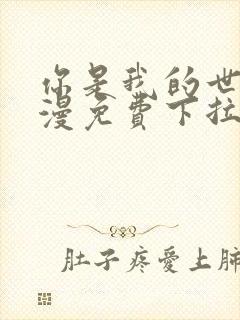 你是我的世
漫免費下拉
肚子疼愛上肺